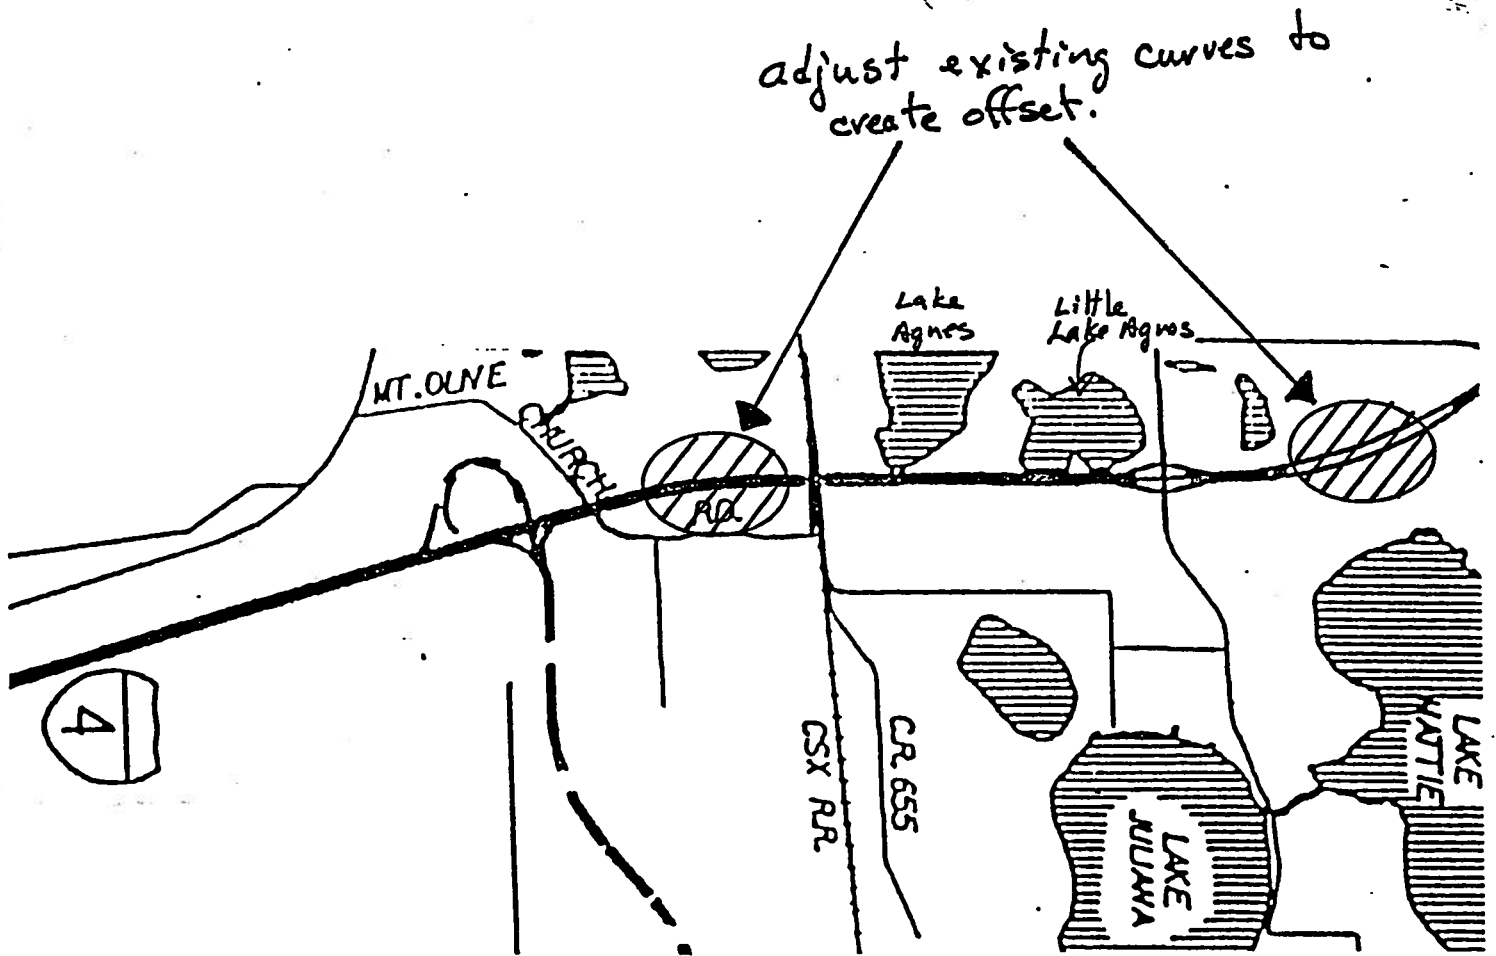 adjust existing curves to
create offset.
Lake
Agnes
Little
Lake Agnes
MT. OLIVE
CHURCH
RD.
4
CSX RR
C.R. 655
LAKE
JULIANA
LAKE
MATTIE